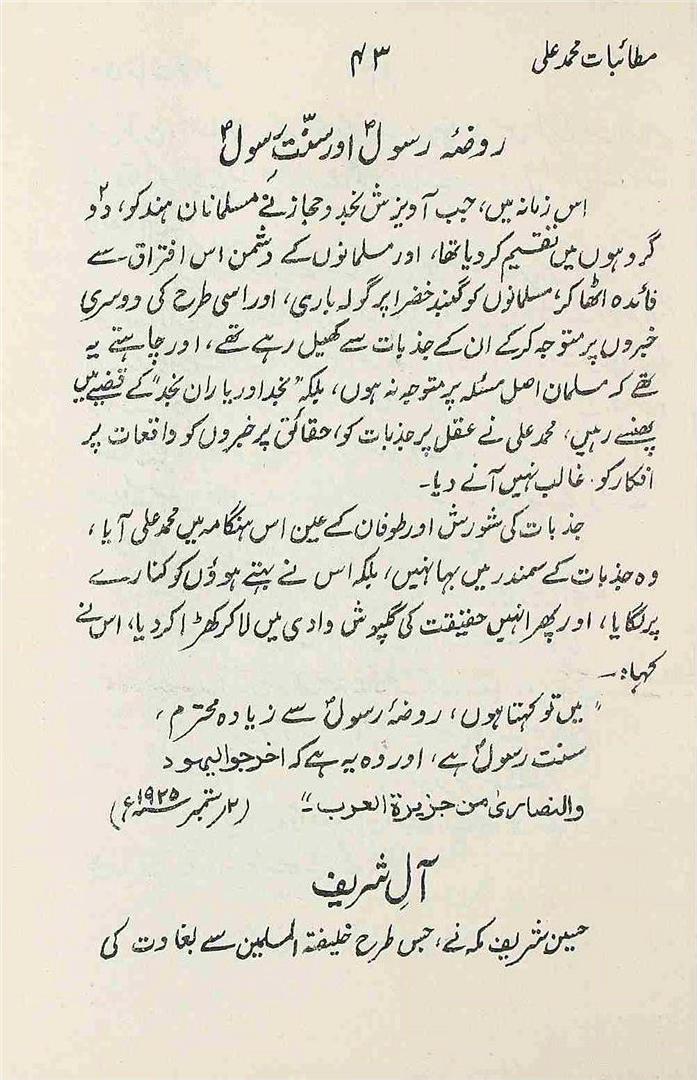 مطائبات محمد علی
۴۳
روضۂ رسولؐ اور سنّت رسولؐ
اس زمانہ میں، جب آویزش نجد و حجاز نے مسلمانان ہند کو، دو
گروہوں میں تقسیم کر دیا تھا، اور مسلمانوں کے دشمن اس افتراق سے
فائدہ اٹھا کر، مسلمانوں کو گنبد خضرا پر گولہ باری، اور اسی طرح کی دوسری
خبروں پر متوجہ کرکے ان کے جذبات سے کھیل رہے تھے، اور چاہتے یہ
تھے کہ مسلمان اصل مسئلہ پر متوجہ نہ ہوں، بلکہ "نجد اور یاران نجد" کے قضیے میں
پھنسے رہیں، محمد علی نے عقل پر جذبات کو، حقائق پر خبروں کو واقعات پر
افکار کو غالب نہیں آنے دیا۔
جذبات کی شورش اور طوفان کے عین اس ہنگامہ میں محمد علی آیا،
وہ جذبات کے سمندر میں بہا نہیں، بلکہ اس نے بہتے ہوؤں کو کنارے
پر لگایا، اور پھر انہیں حقیقت کی گلپوش وادی میں لا کر کھڑا کر دیا، اس نے
کہا:۔
"میں تو کہتا ہوں، روضۂ رسولؐ سے زیادہ محترم،
سنت رسولؐ ہے، اور وہ یہ ہے کہ اخرجوا الیہود
والنصاریٰ من جزیرۃ العرب۔" (۲ر ستمبر ۱۹۲۵ء)
آلِ شریف
حسین شریف مکہ نے، جس طرح خلیفۃ المسلمین سے بغاوت کی